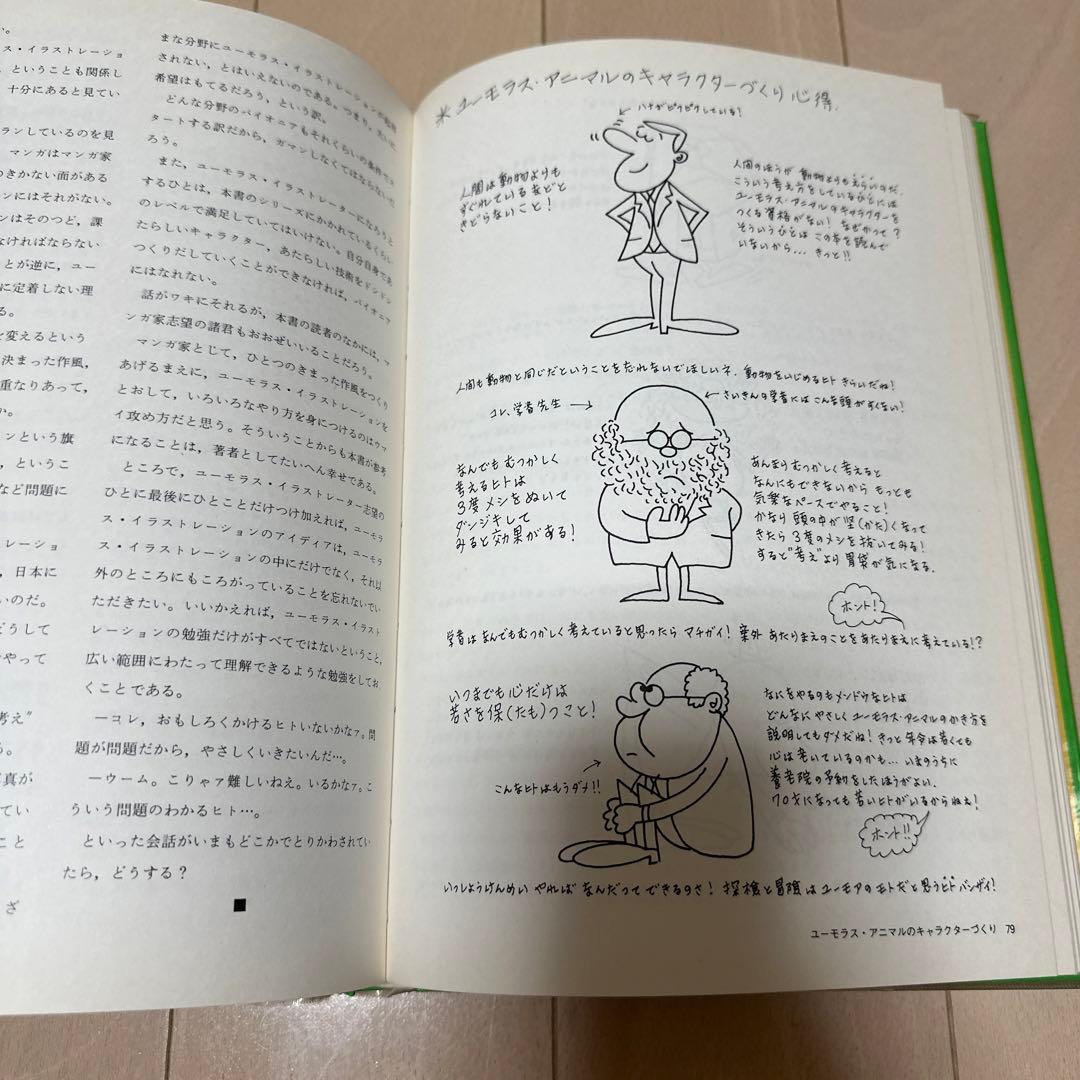 い。
ス・イラストレーショ
，ということも関係し
十分にあると見てい
ランしているのを見
マンガはマンガ家
つきかない面がある
ンにはそれがない。
ンはそのつど，課
なければならない
とが逆に，ユー
に定着しない理
る。
を変えるという
決まった作風，
重なりあって，
か。
ョンという旗
，というこ
など問題に
レーショ
，日本に
いのだ。
どうして
やって
考え”
る。
写真が
てい
こと
ざ
まな分野にユーモラス・イラストレーションが
されない，とはいえないのである。つまり，
希望はもてるだろう，という訳。
どんな分野のパイオニアもそれくらいの条件でス
タートする訳だから，ガマンしなくてはならないだ
ろう。
また，ユーモラス・イラストレーターになろうと
するひとは，本書のシリーズにかかれているくらい
のレベルで満足していてはいけない。自分自身であ
たらしいキャラクター，あたらしい技術をドシドシ
つくりだしていくことができなければ，パイオニア
にはなれない。
話がワキにそれるが，本書の読者のなかには，マ
ンガ家志望の諸君もおおぜいいることだろう。
マンガ家として，ひとつのきまった作風をつくり
あげるまえに，ユーモラス・イラストレーションを
とおして，いろいろなやり方を身につけるのはウマ
イ攻め方だと思う。そういうことからも本書が参考
になることは，著者としてたいへん幸せである。
ところで，ユーモラス・イラストレーター志望の
ひとに最後にひとことだけつけ加えれば，ユーモラ
ス・イラストレーションのアイディアは，ユーモラ
ス・イラストレーションの中にだけでなく，それ以
外のところにもころがっていることを忘れないでい
ただきたい。いいかえれば，ユーモラス・イラスト
レーションの勉強だけがすべてではないということ，
広い範囲にわたって理解できるような勉強をしてお
くことである。
─コレ，おもしろくかけるヒトいないかなァ。問
題が問題だから，やさしくいきたいんだ…。
─ウーム。こりゃァ難しいねえ。いるかなァ。こ
ういう問題のわかるヒト…。
といった会話がいまもどこかでとりかわされてい
たら，どうする？
■
＊ユーモラス・アニマルのキャラクターづくり心得．
ハナがピクピクしている！
人間は動物よりも
すぐれているなどと
きどらないこと！
人間のほうが動物よりもえらいのだ．
こういう考え方をしているひとには
ユーモラス・アニマルのキャラクターを
つくる資格がない！なぜかって？
そういうひとはこの本を読んで
いないから…きっと!!
人間も動物と同じだということを忘れないでほしいネ．動物をいじめるヒト きらいだね！
コレ、学者先生
さいきんの学者にはこんな頭がすくない！
なんでもむつかしく
考えるヒトは
3度メシをぬいて
ダンジキして
みると効果がある！
あんまりむつかしく考えると
なんにもできないからもっとも
気楽なペースでやること！
かなり頭の中が堅(かた)くなって
きたら3度のメシを抜いてみる！
すると“考え”より胃袋が気になる．
ホント！
学者はなんでもむつかしく考えていると思ったらマチガイ！案外 あたりまえのことをあたりまえに考えている!?
いつまでも心だけは
若さを保(たも)つこと！
こんなヒトはもうダメ!!
なにをやるのもメンドウなヒトは
どんなにやさしくユーモラス・アニマルのかき方を
説明してもダメだね！きっと年令は若くても
心は老いているのかも…いまのうちに
養老院の予約をしたほうがよい．
70才になっても若いヒトがいるからねぇ！
ホント!!
いっしょうけんめい やれば なんだってできるのさ！探検と冒険はユーモアのモトだと思うヒト バンザイ！
ユーモラス・アニマルのキャラクターづくり 79